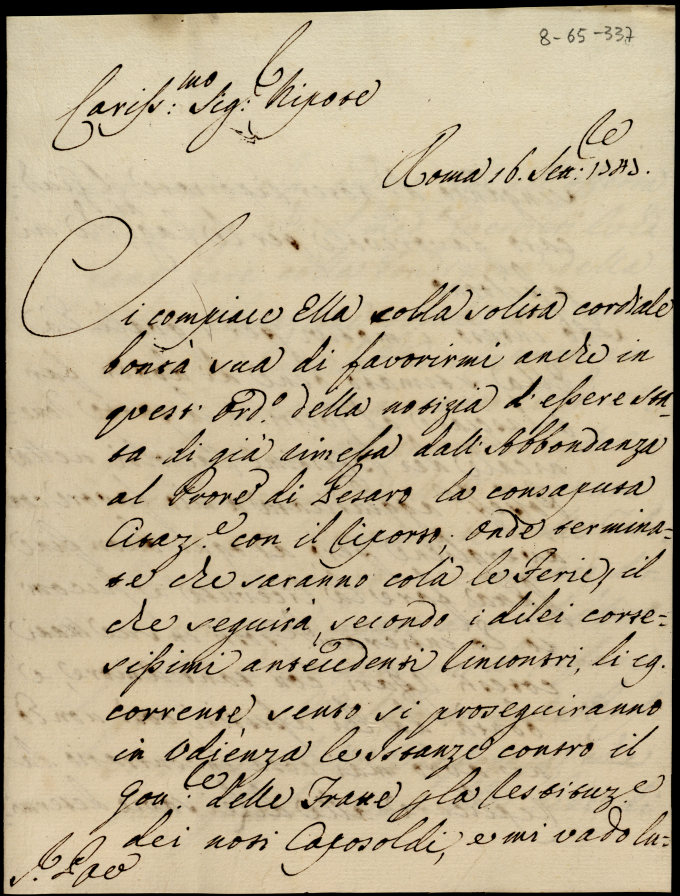 8-65-337
Cariss:mo Sig:r Nipote
Roma 16. Sett:re
Si compiace Ella colla solita cordiale
bontà sua di favorirmi anche in
quest' Ord.o della notizia d'essere sta-
ta di già rimessa dall'Abbondanza
al Prore di Pesaro la consaputa
Citaz.e con il riporto; onde termina-
te che saranno colà le Ferie, il
che seguirà, secondo i di lei corte-
sissimi antecedenti rincontri, li 29.
corrente sento si proseguiranno
in Udienza le Istanze contro il
delle Tratte p la restituz.e
dei noti Caposoldi, e mi vado lu-